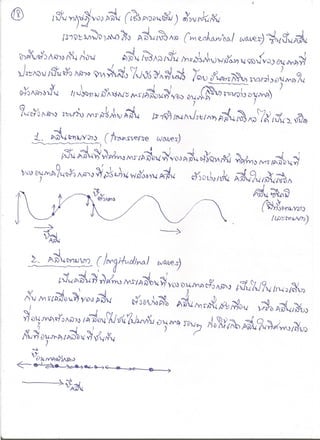 เป็นทฤษฎีของคลื่น (เชิงควอนตัม) ด้วยเช่นกัน
เราจะมาพิจารณาถึง คลื่นเชิงกล (mechanical waves) ซึ่งเป็นคลื่น
อาศัยตัวกลางกันก่อน คลื่นเชิงกลเป็นการส่งผ่านพลังงานของอนุภาคที่
ประกอบเป็นตัวกลาง จากที่หนึ่งไปยังอีกที่หนึ่ง โดย อันตรกิริยาระหว่างอนุภาคใน
ตัวกลางนั้น แบ่งตามลักษณะการเคลื่อนที่ของอนุภาค
ในตัวกลาง ระหว่างการส่งผ่านคลื่น เราจำแนกประเภทคลื่นเชิงกลได้เป็น 2 ชนิด
1. คลื่นตามขวาง (transverse waves)
เป็นคลื่นที่ทิศทางการเคลื่อนที่ของคลื่นตั้งฉากกับ ทิศทางการเคลื่อนที่
ของอนุภาคในตัวกลางที่ส่งผ่านพลังงานคลื่น ตัวอย่างเช่น คลื่นในเส้นเชือก
คลื่นผิวน้ำ
(มีทั้งตามขวาง
และตามยาว)
v ตัวกลาง
v คลื่น
2. คลื่นตามยาว (longitudinal waves)
เป็นคลื่นที่ทิศทางการเคลื่อนที่ของอนุภาคตัวกลาง เป็นไปในแนวเดียว
กับการเคลื่อนที่ของคลื่น ตัวอย่างคือ คลื่นการสั่นสะเทือน หรือคลื่นเสียง
ที่อนุภาคตัวกลางเคลื่อนไปชนไปมากับอนุภาค รอบๆ ก่อให้เกิดคลื่นในทิศทางเดียว
กับที่อนุภาคเคลื่อนที่ชนกัน
v อนุภาคตัวกลาง
v คลื่น